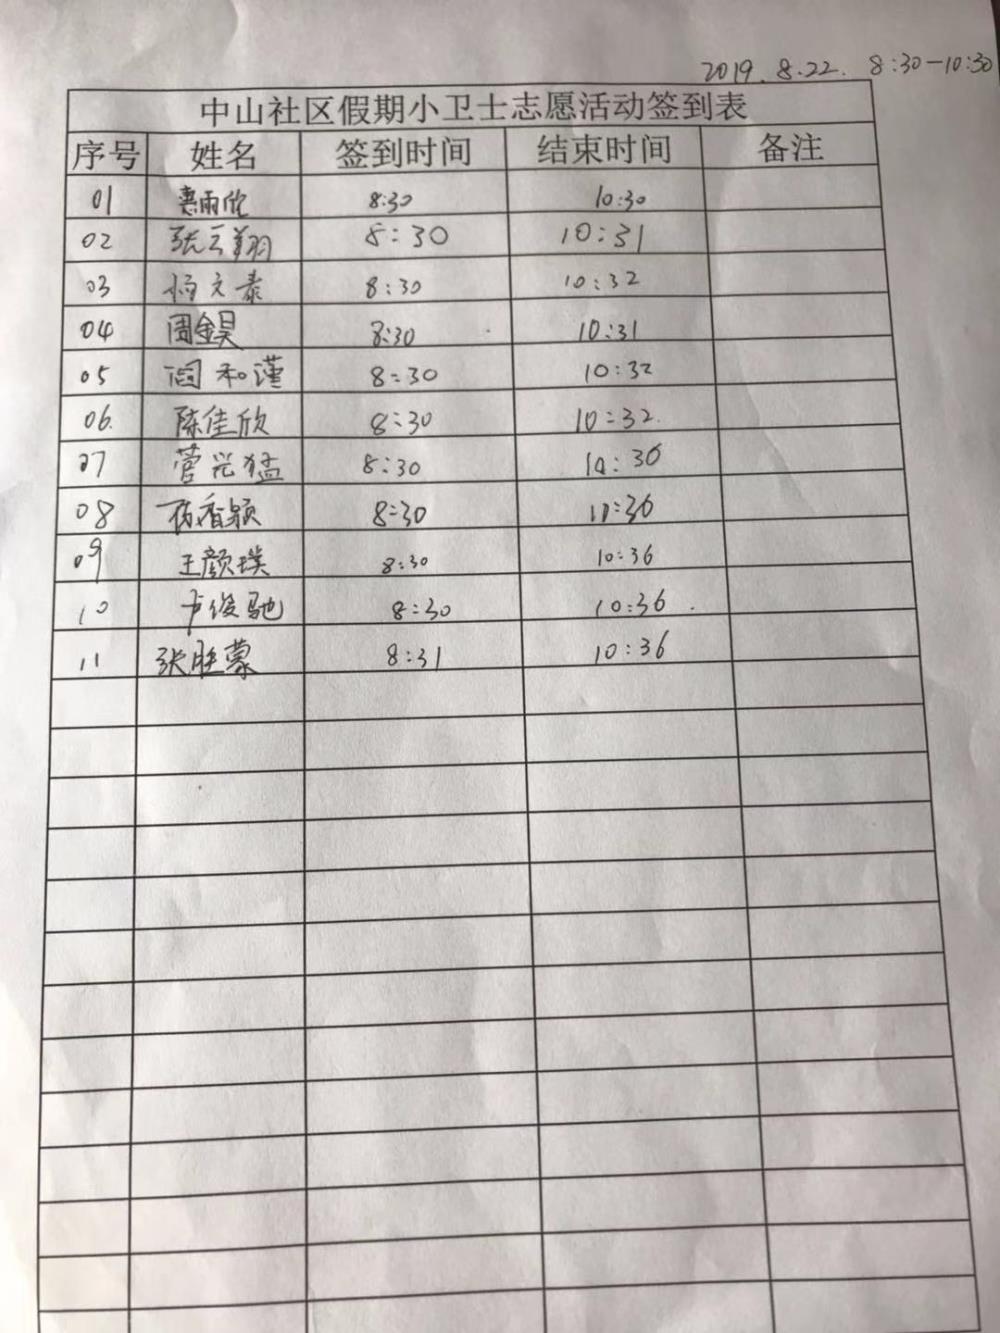 2019.8.22. 8:30-10:30
中山社区假期小卫士志愿活动签到表
序号 姓名 签到时间 结束时间 备注
01 8:30 10:30
02 张云翔 8:30 10:31
03 杨文泰 8:30 10:32
04 周金昊 8:30 10:31
05 闫和谨 8:30 10:32
06. 陈佳欣 8:30 10:32.
07 菅光猛 8:30 10:36
08 8:30 10:36
09 王颜璞 8:30 10:36
10 卢俊驰 8:30 10:36.
11 张胜蒙 8:31 10:36